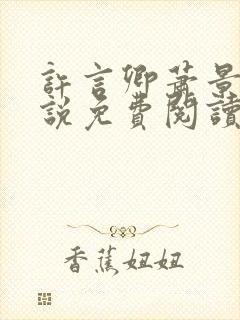 許言卿蕭景
說免費閱讀
香蕉妞妞